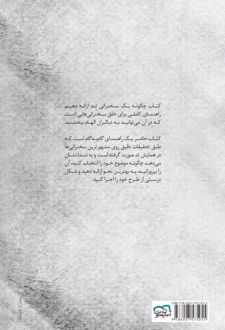 کتاب چگونه یک سخنرانی تد ارائه دهیم
راهنمای کاملی برای خلق سخنرانی‌هایی است
که در آن می‌توانید به دیگران الهام ببخشید.
کتاب حاضر یک راهنمای گام‌به‌گام است که
طبق تحقیقات دقیق روی مشهورترین سخنرانی‌ها
در همایش تد صورت گرفته است و به شما نشان
می‌دهد چگونه موضوع خود را انتخاب کنید، آن
را بپرورانید، به بهترین نحو ارائه دهید و شکل
درستی از طرح خود را اجرا کنید.